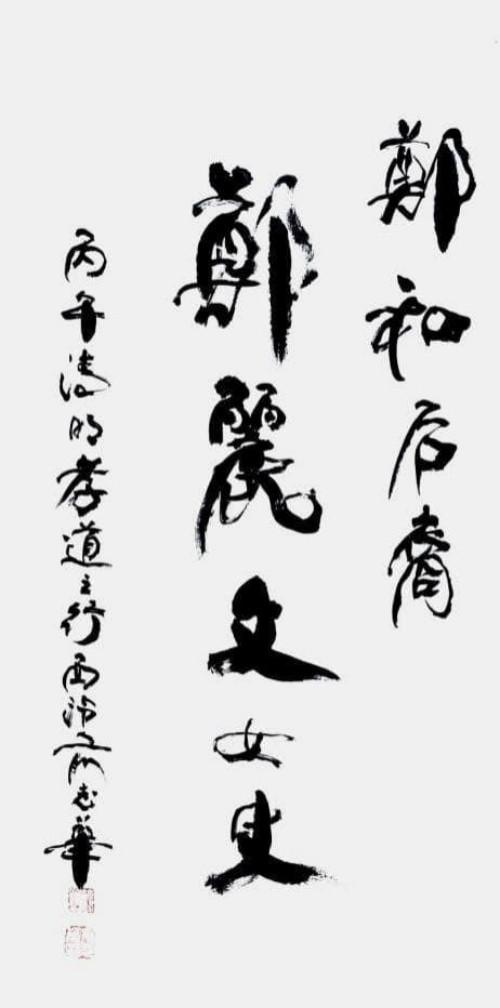 鄭和后裔
鄭麗文女史
丙午清明孝道之行西泠志華